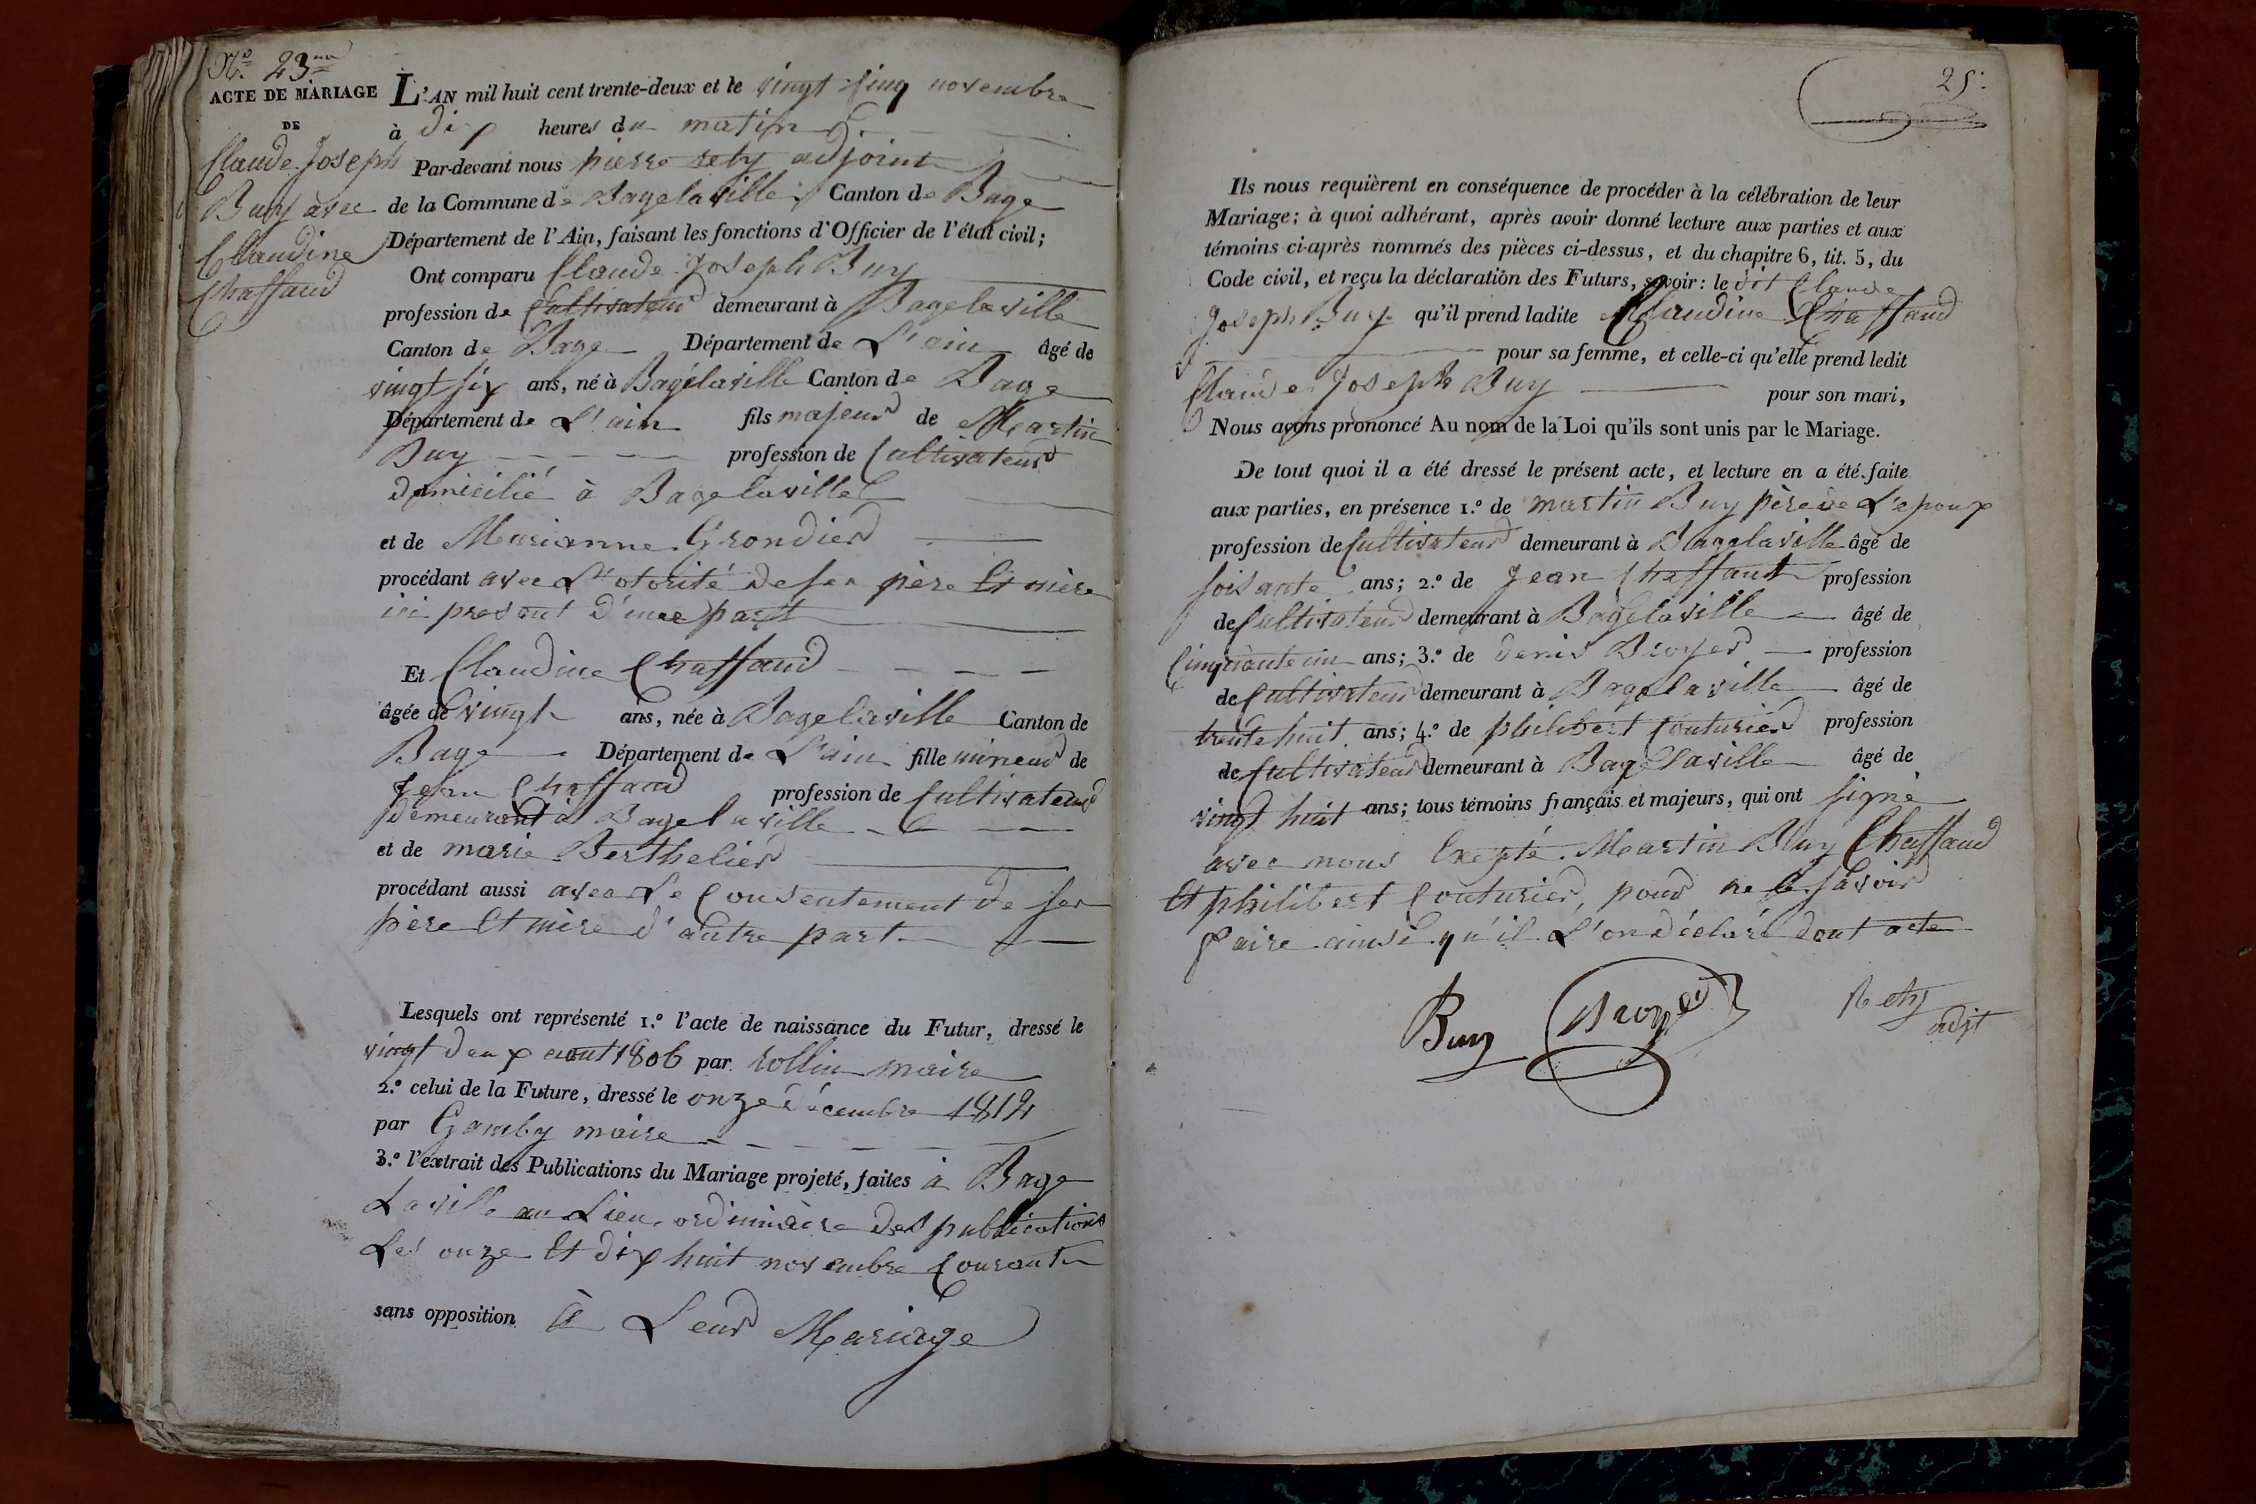 N.º 23
ACTE DE MARIAGE
DE
Claude Joseph
Buy avec
Claudine
Chaffaud
L'AN mil huit cent trente-deux et le vingt sinq novembre
à dix heures du matin
Par-devant nous pierre rety adjoint
de la Commune de Bagelaville Canton de Bage
Département de l'Ain, faisant les fonctions d'Officier de l'état civil;
Ont comparu Claude Joseph Buy
profession de Cultivateur demeurant à Bagelaville
Canton de Bage Département de L'ain âgé de
vingt six ans, né à Bagélaville Canton de Bage
Département de L'ain fils majeur de Martin
Buy profession de Cultivateur
domicilié à Bagelaville
et de Marianne Grondier
procédant avec L'otorité de ses père Et mère
ici présent d'une part
Et Claudine Chaffaud
âgée de vingt ans, née à Bagelaville Canton de
Bage Département de L'ain fille mineur de
Jean Chaffaud profession de Cultivateur
demeurant à Bagelaville
et de marie Berthelier
procédant aussi avec Le Consentement de ses
père Et mère d'autre part
Lesquels ont représenté 1.º l'acte de naissance du Futur, dressé le
vingt deux aout 1806 par rollin maire
2.º celui de la Future, dressé le onze décembre 1812
par Gamby maire
3.º l'extrait des Publications du Mariage projeté, faites à Bage
Laville au Lieu ordiniaire des publications
Les onze Et dix huit novembre Courant
sans opposition à Leur Mariage
25.
Ils nous requièrent en conséquence de procéder à la célébration de leur
Mariage; à quoi adhérant, après avoir donné lecture aux parties et aux
témoins ci-après nommés des pièces ci-dessus, et du chapitre 6, tit. 5, du
Code civil, et reçu la déclaration des Futurs, savoir: le dit Claude
Joseph Buy qu'il prend ladite Claudine Chaffaud
pour sa femme, et celle-ci qu'elle prend ledit
Claude Joseph Buy pour son mari,
Nous avons prononcé Au nom de la Loi qu'ils sont unis par le Mariage.
De tout quoi il a été dressé le présent acte, et lecture en a été faite
aux parties, en présence 1.º de martin Buy père de L'epoux
profession de Cultivateur demeurant à Bagelaville âgé de
soisante ans; 2.º de Jean Chaffaud profession
de Cultivateur demeurant à Bagelaville âgé de
Cinquante un ans; 3.º de denis Broyer profession
de Cultivateur demeurant à Bagelaville âgé de
trente huit ans; 4.º de philibert Couturier profession
de Cultivateur demeurant à Bagelaville âgé de
vingt huit ans; tous témoins français et majeurs, qui ont signé
avec nous Exepté Martin Buy Chaffaud
Et philibert Couturier, pour ne le savoir
faire ainsi qu'il L'on déclaré dont acte
Buy Broyer Rety
adjt